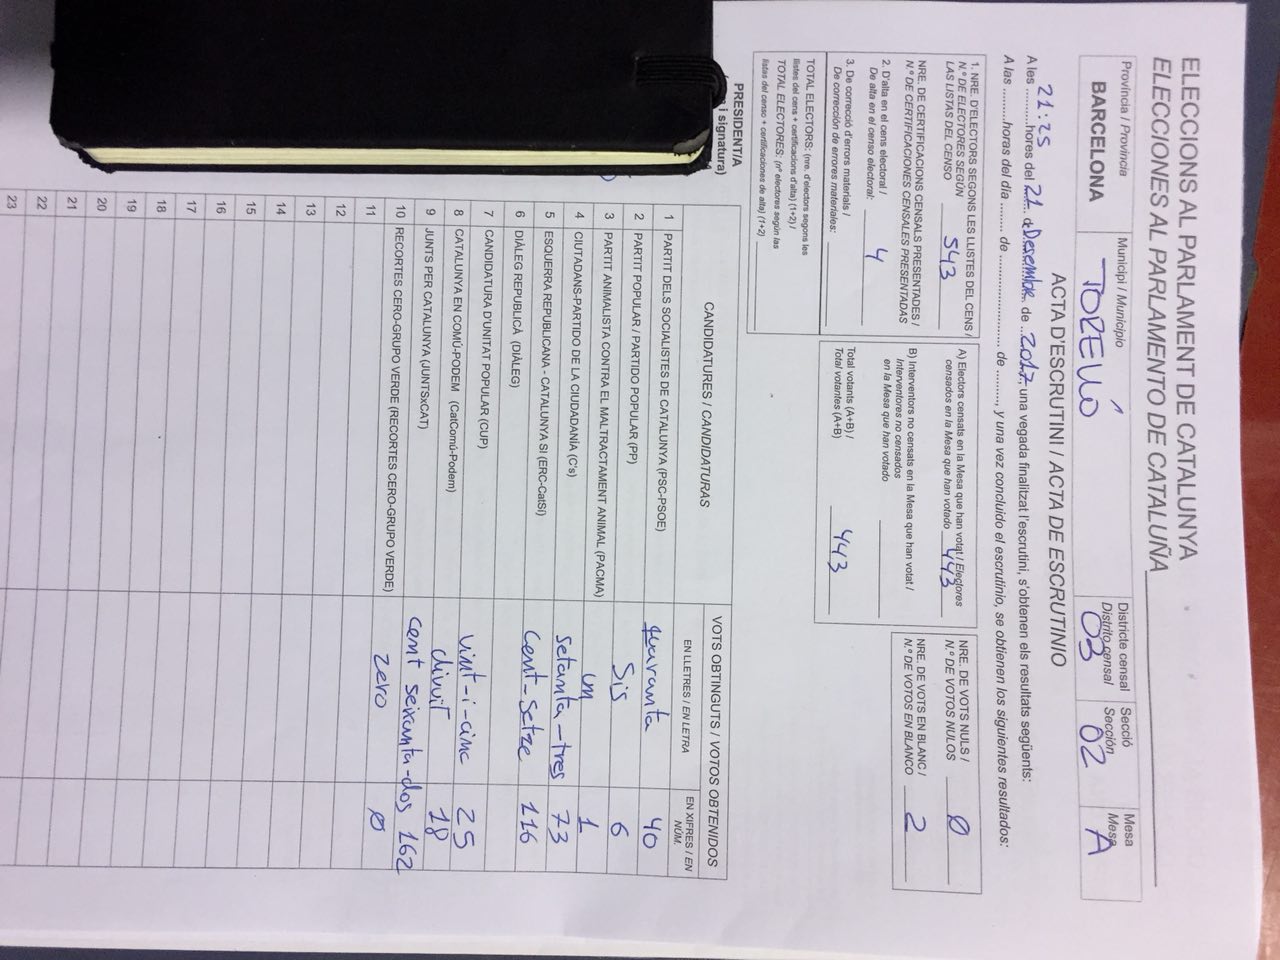 ELECCIONS AL PARLAMENT DE CATALUNYA
ELECCIONES AL PARLAMENTO DE CATALUÑA
Província / Provincia
BARCELONA
Municipi / Municipio
TORELLÓ
Districte censal
Distrito censal
03
Secció
Sección
02
Mesa
Mesa
A
ACTA D'ESCRUTINI / ACTA DE ESCRUTINIO
A les 21:25 hores del 21 de Desembre de 2017, una vegada finalitzat l'escrutini, s'obtenen els resultats següents:
A las ........horas del día ........ de ........................ de ........, y una vez concluido el escrutinio, se obtienen los siguientes resultados:
1. NRE. D'ELECTORS SEGONS LES LLISTES DEL CENS /
N.º DE ELECTORES SEGÚN
LAS LISTAS DEL CENSO 543
NRE. DE CERTIFICACIONS CENSALS PRESENTADES /
N.º DE CERTIFICACIONES CENSALES PRESENTADAS
2. D'alta en el cens electoral /
De alta en el censo electoral: 4
3. De correcció d'errors materials /
De corrección de errores materiales:
TOTAL ELECTORS: (nre. d'electors segons les
llistes del cens + certificacions d'alta) (1+2) /
TOTAL ELECTORES: (nº electores según las
listas del censo + certificaciones de alta) (1+2)
A) Electors censats en la Mesa que han votat / Electores
censados en la Mesa que han votado 443
B) Interventors no censats en la Mesa que han votat /
Interventores no censados
en la Mesa que han votado
Total votants (A+B) /
Total votantes (A+B) 443
NRE. DE VOTS NULS /
N.º DE VOTOS NULOS 0
NRE. DE VOTS EN BLANC /
N.º DE VOTOS EN BLANCO 2
PRESIDENT/A
i signatura)
CANDIDATURES / CANDIDATURAS
VOTS OBTINGUTS / VOTOS OBTENIDOS
EN LLETRES / EN LETRA
EN XIFRES / EN
NÚM.
1 PARTIT DELS SOCIALISTES DE CATALUNYA (PSC-PSOE) quaranta 40
2 PARTIT POPULAR / PARTIDO POPULAR (PP) Sis 6
3 PARTIT ANIMALISTA CONTRA EL MALTRACTAMENT ANIMAL (PACMA) un 1
4 CIUTADANS-PARTIDO DE LA CIUDADANÍA (C's) setanta-tres 73
5 ESQUERRA REPUBLICANA - CATALUNYA SI (ERC-CatSI) Cent-setze 116
6 DIÀLEG REPUBLICÀ (DIÀLEG)
7 CANDIDATURA D'UNITAT POPULAR (CUP) vint-i-cinc 25
8 CATALUNYA EN COMÚ-PODEM (CatComú-Podem) divuit 18
9 JUNTS PER CATALUNYA (JUNTSxCAT) cent seixanta-dos 162
10 RECORTES CERO-GRUPO VERDE (RECORTES CERO-GRUPO VERDE) zero 0
11
12
13
14
15
16
17
18
19
20
21
22
23